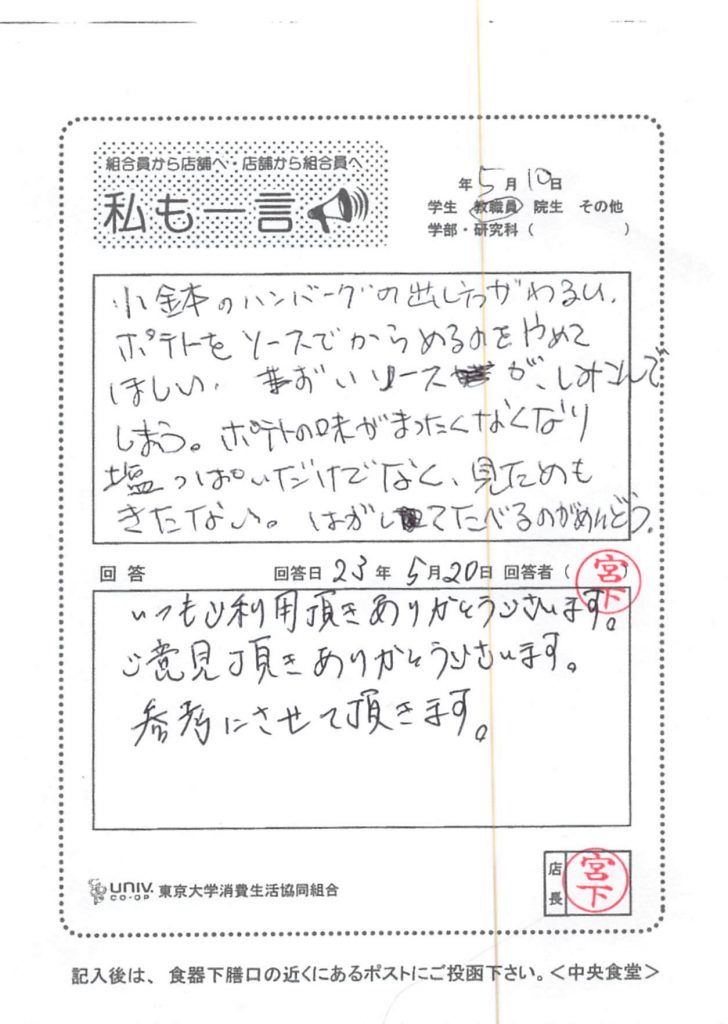 組合員から店舗へ・店舗から組合員へ
私も一言
年 5月 10日
学生 教職員 院生 その他
学部・研究科 ( )
小鉢のハンバーグの出し方がわるい。
ポテトをソースでからめるのをやめて
ほしい。 おいソースが、しみこんで
しまう。ポテトの味がまったくなくなり
塩っぱいだけでなく、見ためも
きたない。はがしてたべるのがめんどう。
回答 回答日 23年 5月20日 回答者 ( 宮下 )
いつもご利用頂きありがとうございます。
ご意見頂きありがとうございます。
参考にさせて頂きます。
UNIV. CO-OP 東京大学消費生活協同組合
店長 宮下
記入後は、食器下膳口の近くにあるポストにご投函下さい。<中央食堂>